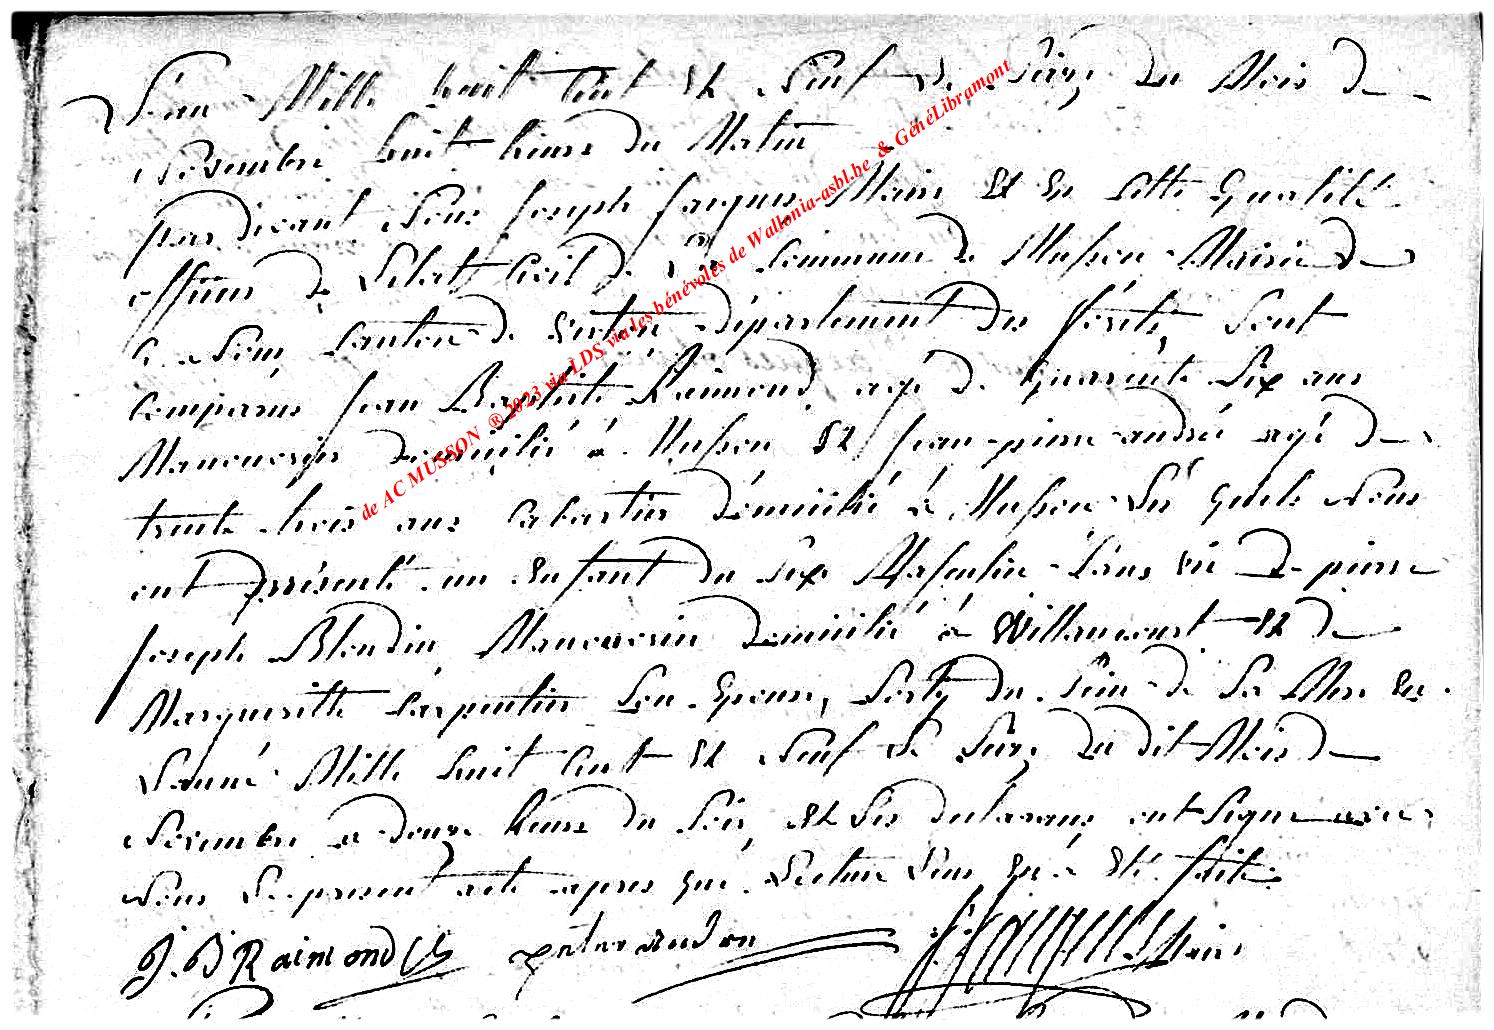 L'an Mille huit Cent Et Neuf Le Seize du Mois de
Novembre huit heures du Matin
pardevant Nous Joseph Jacques Maire Et En Cette Qualité
officier de L'état Civil de La Commune de Musson Mairie de
Ce Nom, Canton de Virton département des forêts, Sont
Comparus Jean Baptiste Raimond agé de Quarente Six ans
Maneuverier domicilié à Musson Et Jean pierre andré agé de
trente trois ans Cabartier domicilié à Musson Les Quels Nous
ont présenté un Enfant du Sexe Masculin Sans vie de pierre
Joseph Blondin Maneuverier domicilié à Willancourt Et de
Margueritte Carpentier Son Epouse, Sorty du Sein de Sa Mere En
L'anné Mille huit Cent Et Neuf Le du dit Mois de
Novembre a douze heures du Soir, Et Les declarans ont Signe avec
Nous Le present acte apres que Lecture Leur En à Eté faite
J. B Raimond Maire
de AC MUSSON ® 2023 via LDS via les bénévoles de Wallonia-asbl.be & GénéLibramont